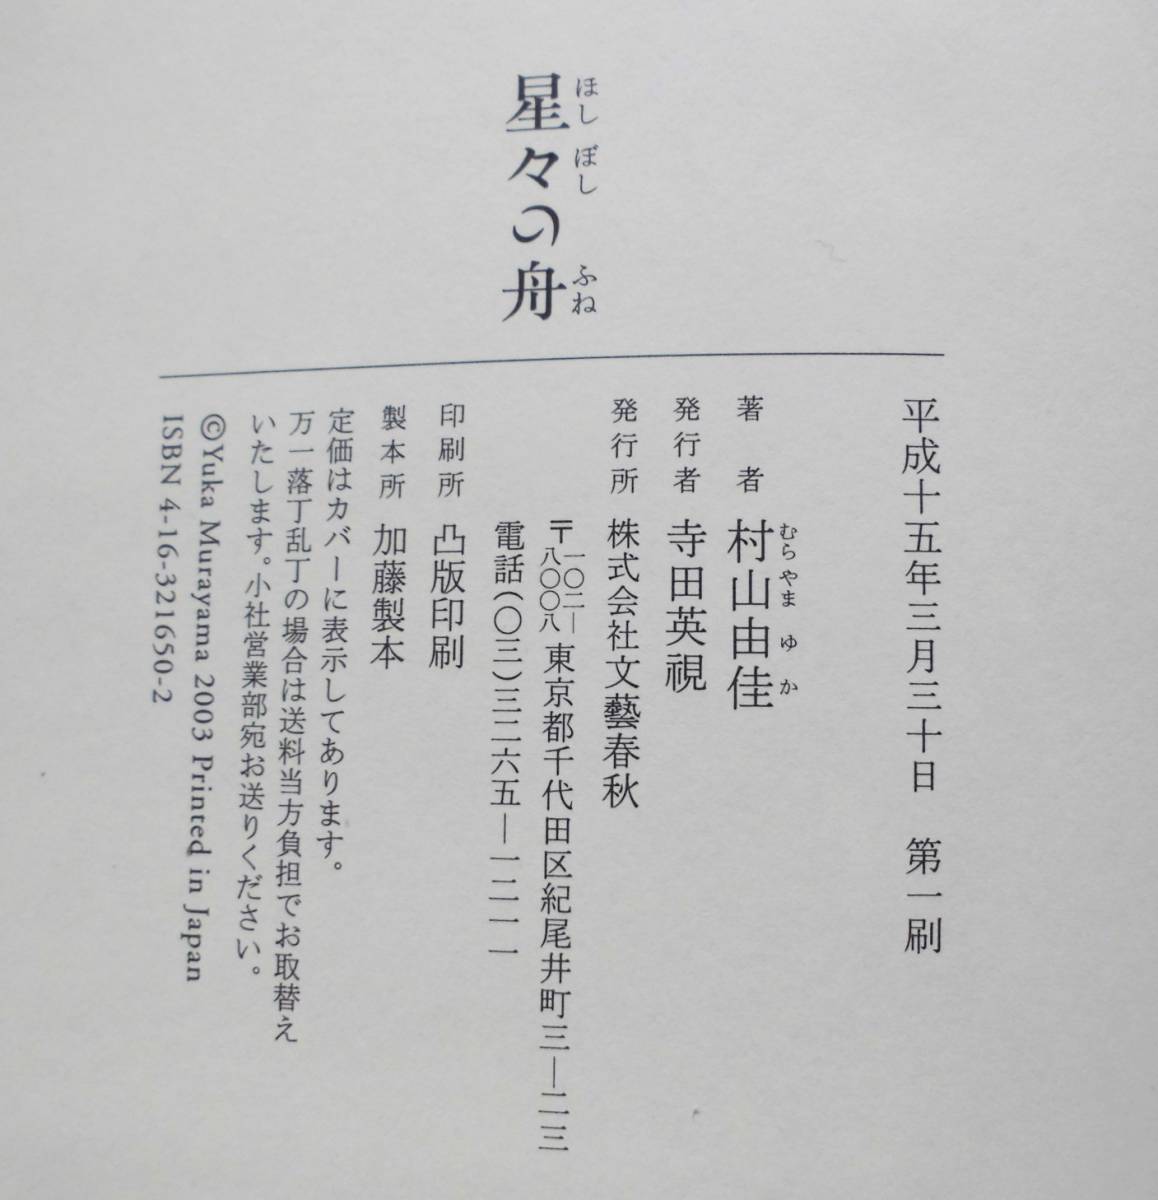 星々の舟
ほしぼし ふね
平成十五年三月三十日 第一刷
著者 村山由佳
むらやまゆか
発行者 寺田英視
発行所 株式会社文藝春秋
〒一〇二―八〇〇八 東京都千代田区紀尾井町三―二三
電話(〇三)三二六五―一二一一
印刷所 凸版印刷
製本所 加藤製本
定価はカバーに表示してあります。
万一落丁乱丁の場合は送料当方負担でお取替え
いたします。小社営業部宛お送りください。
©Yuka Murayama 2003 Printed in Japan
ISBN 4-16-321650-2